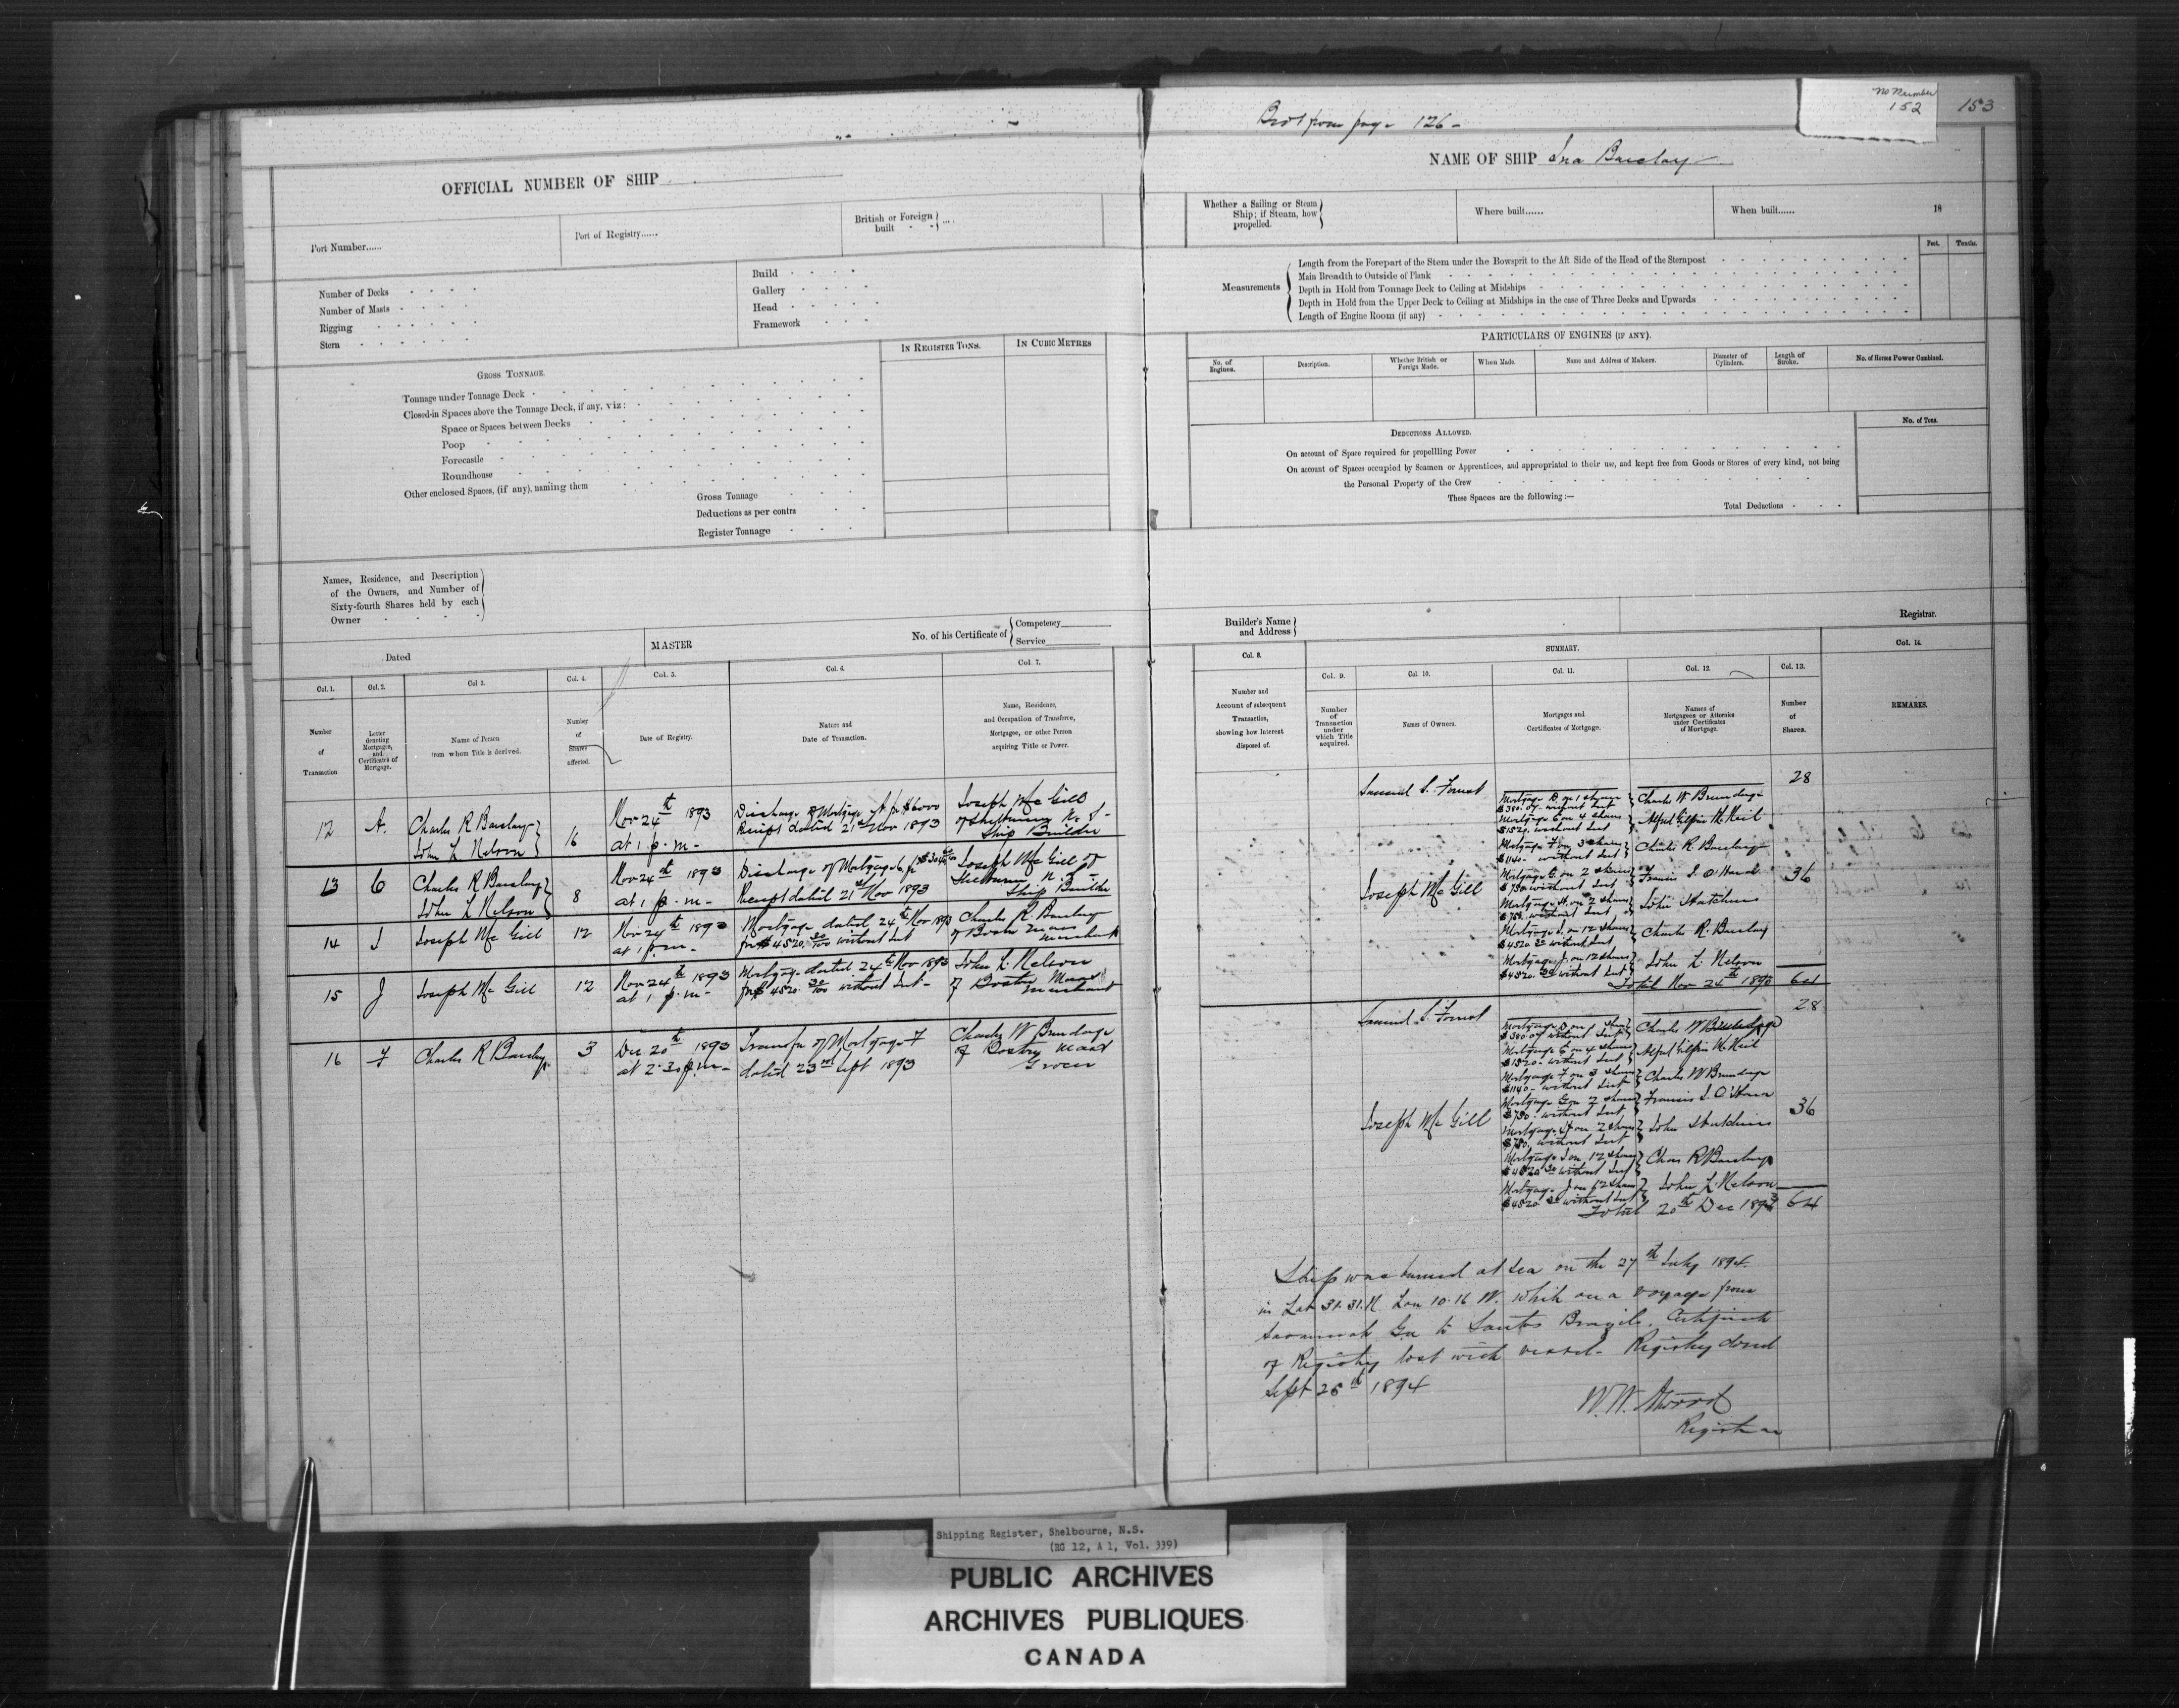 OFFICIAL NUMBER OF SHIP
Port Number......
Port of Registry......
British or Foreign
built
Number of Decks
Number of Masts
Rigging
Stern
Build
Gallery
Head
Framework
IN REGISTER TONS.
IN CUBIC METRES
GROSS TONNAGE.
Tonnage under Tonnage Deck
Closed-in Spaces above the Tonnage Deck, if any, viz:
Space or Spaces between Decks
Poop
Forecastle
Roundhouse
Other enclosed Spaces, (if any), naming them
Gross Tonnage
Deductions as per contra
Register Tonnage
Names, Residence, and Description
of the Owners, and Number of
Sixty-fourth Shares held by each
Owner
Dated
MASTER
No. of his Certificate of
Competency
Service
Col. 1.
Col. 2.
Col 3.
Col. 4.
Col. 5.
Col. 6.
Col. 7.
Number
of
Transaction
Letter
denoting
Mortgages,
and
Certificate of
Mortgage.
Name of Person
from whom Title is derived.
Number
of
Shares
affected.
Date of Registry.
Nature and
Date of Transaction.
Name, Residence,
and Occupation of Transferee,
Mortgagee, or other Person
acquiring Title or Power.
12 A. Charles R Barclay 16 Nov 24th 1893 Discharge of Mortgage A for $6000 Joseph McGill
John L Nelson at 1 p.m- Receipt dated 21st Nov 1893 of Shelburne N.S-
Ship Builder
13 C Charles R Barclay 8 Nov 24th 1893 Discharge of Mortgage C for Joseph McGill of
John L Nelson at 1 p.m- Receipt dated 21st Nov 1893 Shelburne N.S-
Ship Builder
14 I Joseph McGill 12 Nov 24th 1893 Mortgage dated 24th Nov 1893 Charles R. Barclay
at 1 p.m- for $4520.30/100 without Int of Boston Mass
Merchant
15 J Joseph McGill 12 Nov 24th 1893 Mortgage dated 24th Nov 1893 John L. Nelson
at 1 p.m- for $4520.30/100 without Int- of Boston Mass
Merchant
16 F Charles R Barclay 3 Dec 20th 1893 Transfer of Mortgage F Charles W Brundage
at 2.30 p.m- dated 23rd Sept 1893 of Boston
Grocer
No Number
152
153
Brot from page 126-
NAME OF SHIP Ina Barclay
Whether a Sailing or Steam
Ship; if Steam, how
propelled.
Where built......
When built......
18
Feet.
Tenths.
Measurements
Length from the Forepart of the Stem under the Bowsprit to the Aft Side of the Head of the Sternpost
Main Breadth to Outside of Plank
Depth in Hold from Tonnage Deck to Ceiling at Midships
Depth in Hold from the Upper Deck to Ceiling at Midships in the case of Three Decks and Upwards
Length of Engine Room (if any)
PARTICULARS OF ENGINES (IF ANY).
No. of
Engines.
Description.
Whether British or
Foreign Made.
When Made.
Name and Address of Makers.
Diameter of
Cylinders.
Length of
Stroke.
No. of Horses Power Combined.
DEDUCTIONS ALLOWED.
No. of Tons.
On account of Space required for propellling Power
On account of Spaces occupied by Seamen or Apprentices, and appropriated to their use, and kept free from Goods or Stores of every kind, not being
the Personal Property of the Crew
These Spaces are the following:—
Total Deductions
Builder's Name
and Address
Registrar.
Col. 8.
SUMMARY.
Col. 14.
Col. 9.
Col. 10.
Col. 11.
Col. 12.
Col. 13.
Number and
Account of subsequent
Transaction,
showing how Interest
disposed of.
Number
of
Transaction
under
which Title
acquired.
Names of Owners.
Mortgages and
Certificates of Mortgage.
Names of
Mortgagees or Attornies
under Certificates
of Mortgage.
Number
of
Shares.
REMARKS.
Samuel S. Forrest 28
Mortgage D on 1 share Charles W Brundage
$380.07 without Int
Mortgage E on 4 shares Alfred Gilpin McKeil
$1520. without Int
Mortgage F on 3 shares Charles R. Barclay
$1140- without Int
Joseph McGill Mortgage G on 2 shares Francis S. O'Hara 36
$750 without Int
Mortgage H. on 2 shares John Hutchins
$750. without Int
Mortgage I. on 12 shares Charles R. Barclay
$4520.30 without Int
Mortgage J. on 12 shares John L. Nelson
$4520.30 without Int
Total Nov 24th 1893 64
Samuel S. Forrest 28
Mortgage D on 1 share Charles W Brundage
$380.07 without Int
Mortgage E on 4 shares Alfred Gilpin McKeil
$1520- without Int
Mortgage F on 3 shares Charles W Brundage
$1140- without Int
Joseph McGill Mortgage G on 2 shares Francis S. O'Hara 36
$750. without Int
Mortgage H on 2 shares John Hutchins
$750. without Int
Mortgage I on 12 shares Chas R Barclay
$4520.30 without Int
Mortgage J on 12 shares John L. Nelson
$4520.30 without Int
Total 20th Dec 1893 64
Ship was burned at Sea on the 27th July 1894.
in Lat 31.31.N Lon 10.16 W. while on a voyage from
Savannah Ga to Santos Brazil. Certificate
of Registry lost with vessel- Registry closed
Sept 26th 1894
W.W. Atwood
Registrar
Shipping Register, Shelbourne, N.S.
(RG 12, A 1, Vol. 339)
PUBLIC ARCHIVES
ARCHIVES PUBLIQUES
CANADA